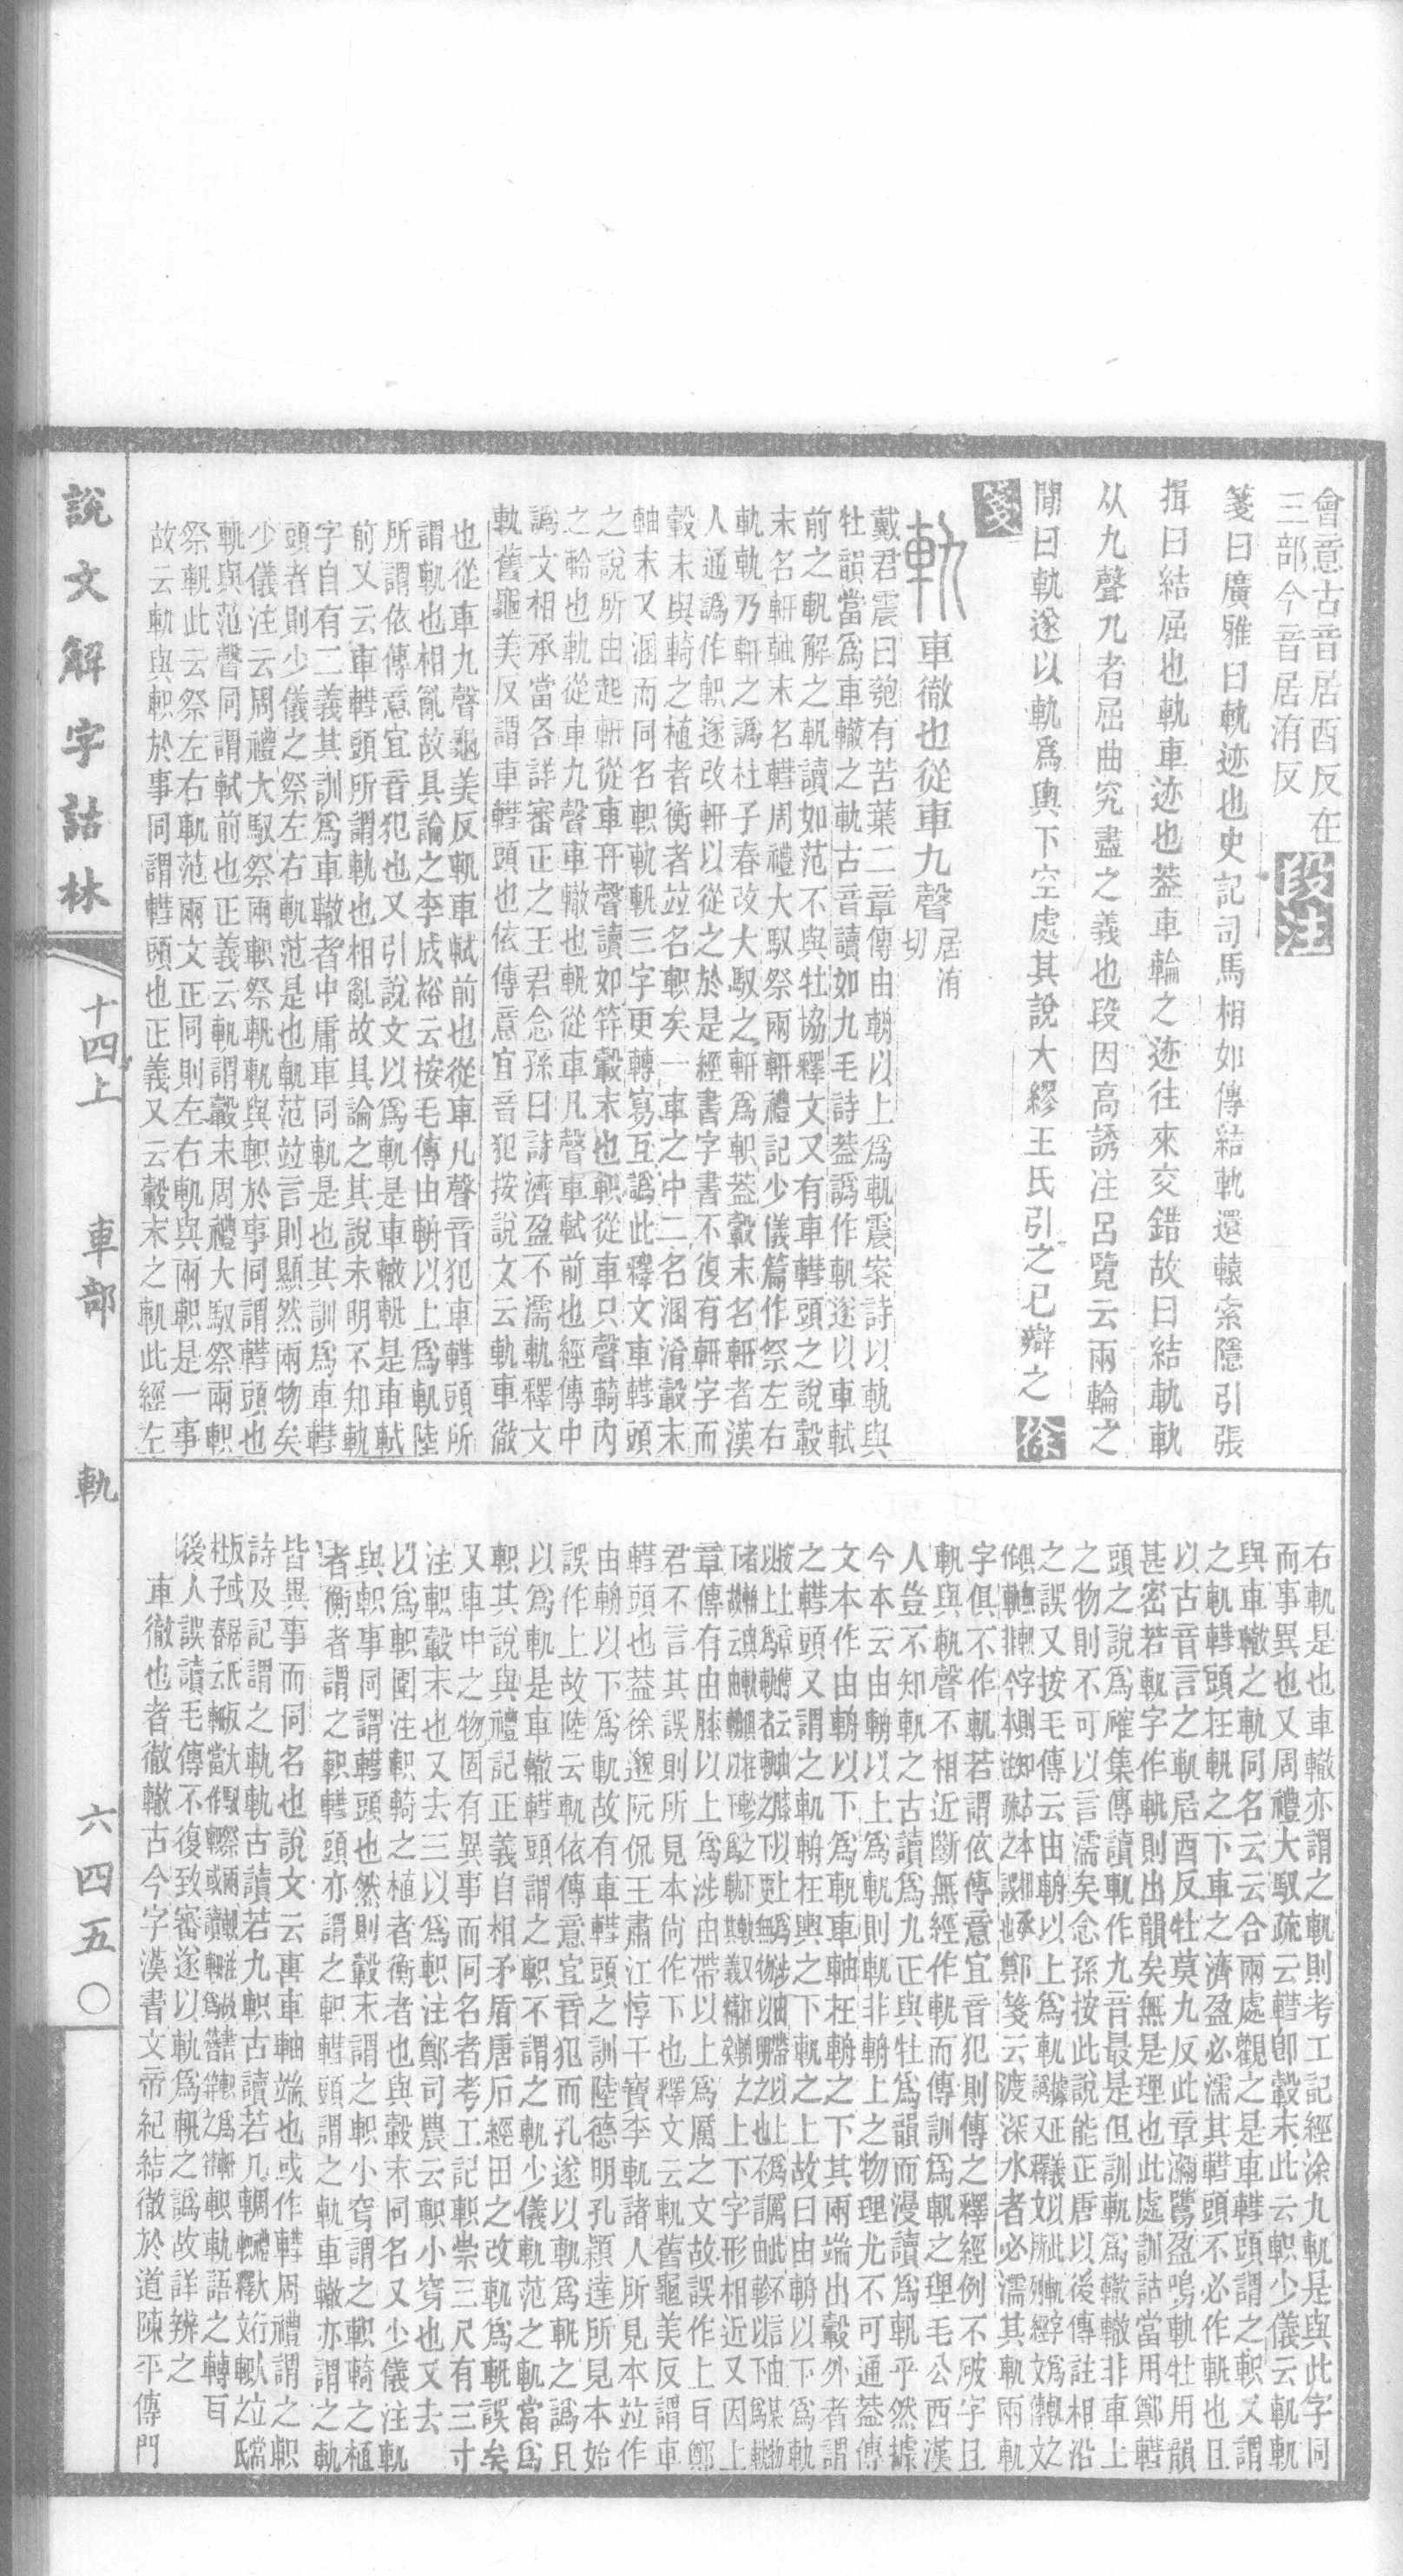 會意古音居酉反在
三部今音居洧反
段注
箋曰廣雅曰軌迹也史記司馬相如傳結軌還轅索隱引張
揖曰結屈也軌車迹也葢車輪之迹往來交錯故曰結軌軌
从九聲九者屈曲究盡之義也段因高誘注呂覽云兩輪之
閒曰軌遂以軌爲輿下空處其說大繆王氏引之已辯之
徐
箋
軌
車徹也從車九聲
居洧
切
戴君震曰匏有苦葉二章傳由輈以上爲軓震案詩以軌與
牡韻當爲車轍之軌古音讀如九毛詩葢譌作軓遂以車軾
前之軓解之軓讀如范不與牡協釋文又有車轊頭之說轂
末名軹軸末名轊周禮大馭祭兩軹禮記少儀篇作祭左右
軌軌乃軹之譌杜子春改大馭之軹爲軹葢轂末名軹者漢
人通譌作軹遂改軹以從之於是經書字書不復有軹字而
轂末與輢之植者衡者竝名軹矣一車之中二名溷淆轂末
軸末又溷而同名軹軌軓三字更轉寫互譌此釋文車轊頭
之說所由起軹從車幵聲讀如笄轂末也軹從車只聲輢内
之軨也軌從車九聲車轍也軓從車凡聲車軾前也經傳中
譌文相承當各詳審正之王君念孫曰詩濟盈不濡軌釋文
軌舊龜美反謂車轊頭也依傳意宜音犯按說文云軌車徹
也從車九聲龜美反軓車軾前也從車凡聲音犯車轊頭所
謂軌也相亂故具論之李成裕云按毛傳由輈以上爲軓陸
所謂依傳意宜音犯也又引說文以爲軌是車轍軓是車軾
前又云車轊頭所謂軌也相亂故具論之其說未明不知軌
字自有二義其訓爲車轍者中庸車同軌是也其訓爲車轊
頭者則少儀之祭左右軌范是也軌范竝言則顯然兩物矣
少儀注云周禮大馭祭兩軹祭軓軌與軹於事同謂轊頭也
軓與范聲同謂軾前也正義云軌謂轂末周禮大馭祭兩軹
祭軓此云祭左右軌范兩文正同則左右軌與兩軹是一事
故云軌與軹於事同謂轊頭也正義又云轂末之軌此經左
右軌是也車轍亦謂之軌則考工記經涂九軌是與此字同
而事異也又周禮大馭疏云轊卽轂末此云軹少儀云軌軌
與車轍之軌同名云云合兩處觀之是車轊頭謂之軹又謂
之軌轊頭在軓之下車之濟盈必濡其轊頭不必作軓也且
以古音言之軌居酉反牡莫九反此章瀰鷕盈鳴軌牡用韻
甚密若軌字作軓則出韻矣無是理也此處訓詁當用鄭轊
頭之說爲確集傳讀軌作九音最是但訓軌爲轍轍非車上
之物則不可以言濡矣念孫按此說能正唐以後傳註相沿
字俱不作軌若謂依傳意宜音犯則傳之釋經例不破字且
軌與軓聲不相近斷無經作軌而傳訓爲軓之理毛公西漢
人豈不知軌之古讀爲九正與牡爲韻而漫讀爲軓乎然據
今本云由輈以上爲軌則軌非輈上之物理尤不可通葢傳
文本作由輈以下爲軌車軸在輈之下其兩端出轂外者謂
之轊頭又謂之軌輈在輿之下軌之上故曰由輈以下爲軌
章傳有由膝以上爲涉由帶以上爲厲之文故誤作上耳鄭
君不言其誤則所見本尙作下也釋文云軌舊龜美反謂車
轊頭也葢徐邈阮侃王肅江惇干寶李軌諸人所見本竝作
由輈以下爲軌故有車轊頭之訓陸德明孔穎達所見本始
誤作上故陸云軌依傳意宜音犯而孔遂以軌爲軓之譌且
以爲軌是車轍轊頭謂之軹不謂之軌少儀軌范之軌當爲
軹其說與禮記正義自相矛盾唐石經因之改軌爲軓誤矣
又車中之物固有異事而同名者考工記軹崇三尺有三寸
注軹轂末也又去三以爲軹注鄭司農云軹小穿也又去
以爲軹圍注軹輢之植者衡者也與轂末同名又少儀注軌
與軹事同謂轊頭也然則轂末謂之軹小穿謂之軹輢之植
者衡者謂之軹轊頭亦謂之軹轊頭謂之軌車轍亦謂之軌
皆異事而同名也說文云軎車軸端也或作轊周禮謂之軹
詩及記謂之軌軌古讀若九軹古讀若几
後人誤讀毛傳不復致審遂以軌爲軓之譌故詳辨之
車徹也者徹轍古今字漢書文帝紀結徹於道陳平傳門
說文解字詁林
十四上
車部
軌
六四五〇